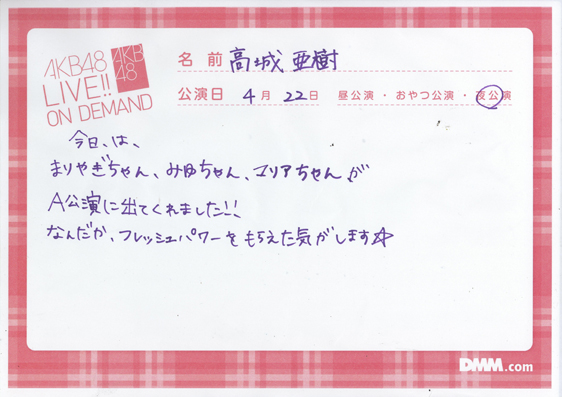 AKB48
LIVE!!
ON DEMAND
AKB
48
名前 高城 亜樹
公演日 4月 22日 昼公演・おやつ公演・夜公演
今日、は、
まりやぎちゃん、みゆちゃん、マリアちゃんが
A公演に出てくれました!!
なんだか、フレッシュパワーをもらえた気がします☆
DMM.com